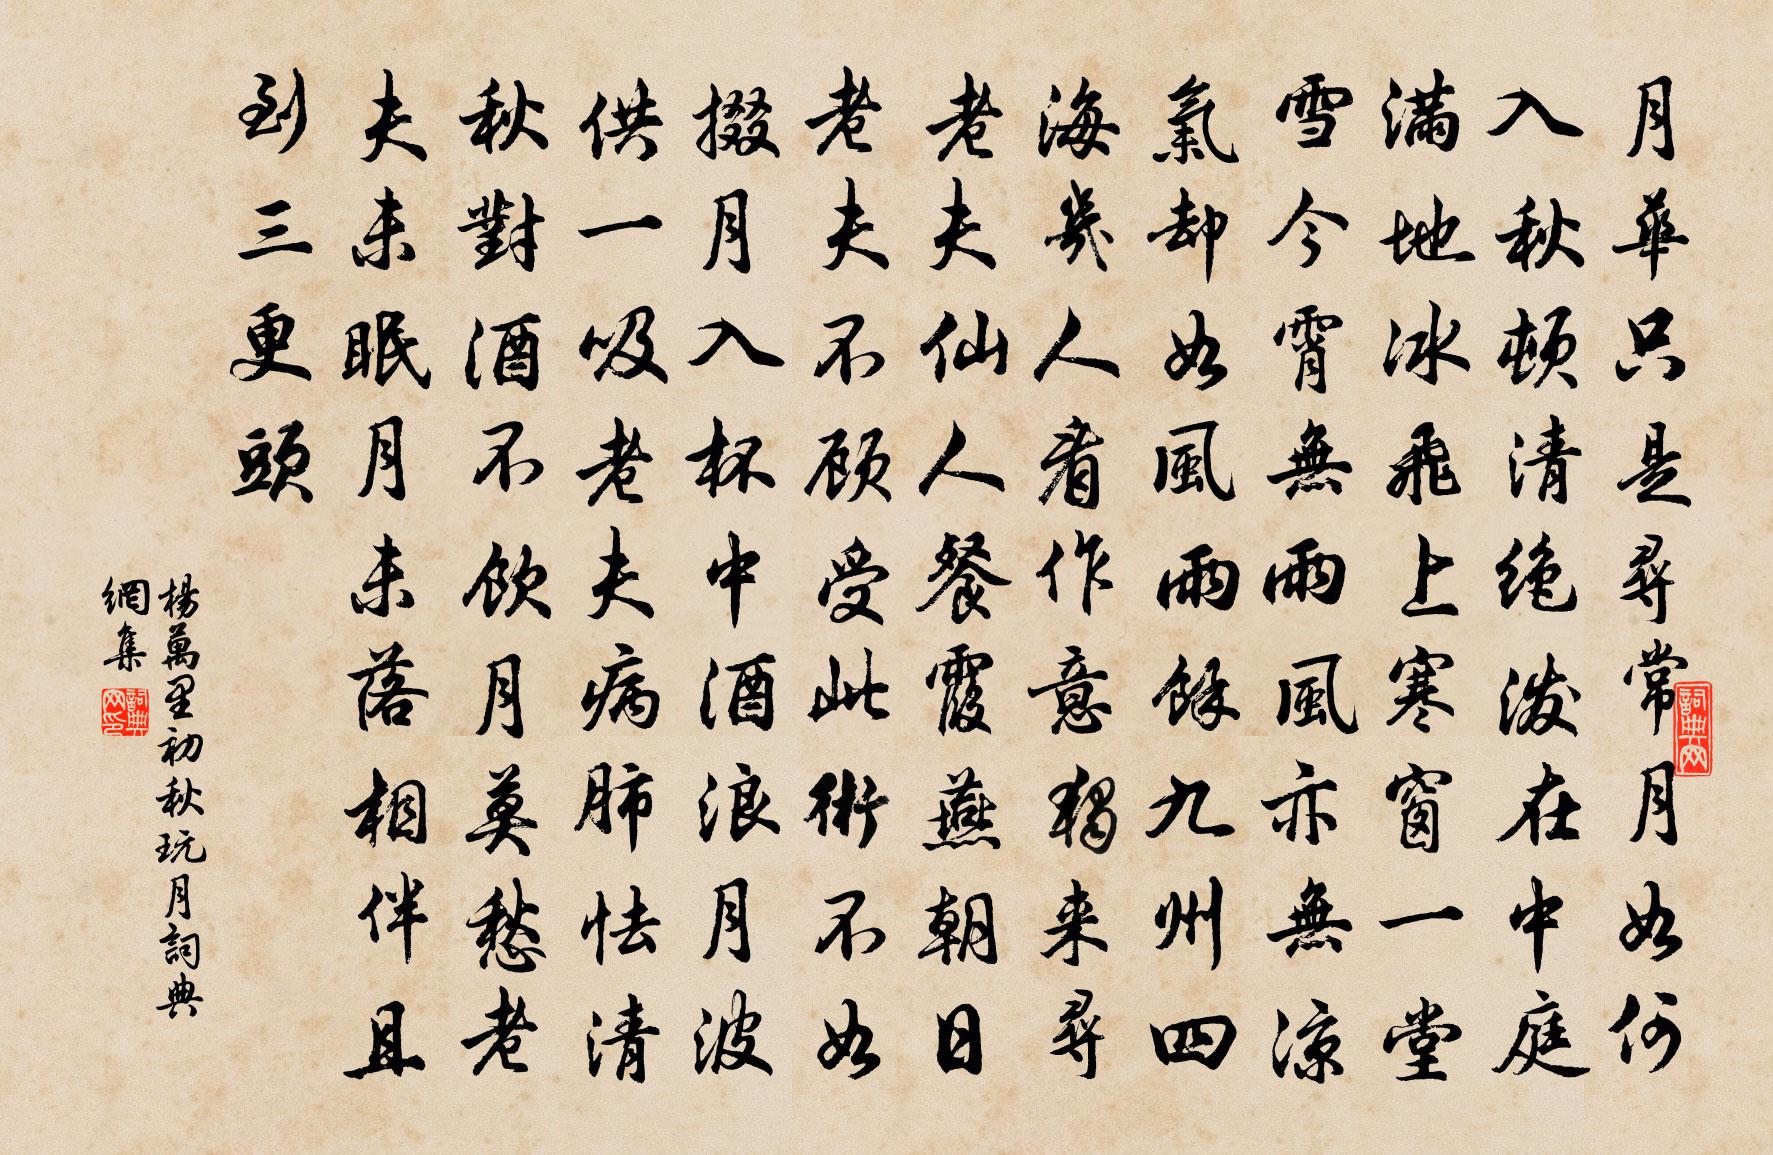 月華只是尋常月如何
入秋頓清絶潑在中庭
滿地冰飛上寒窗一堂
雪今霄無雨風亦無涼
氣却如風雨餘九州四
海幾人看作意獨来尋
老夫仙人餐霞燕朝日
老夫不顾受此術不如
掇月入杯中酒浪月波
供一吸老夫病肺怯清
秋對酒不飲月莫愁老
夫未眠月未落相伴且
到三更頭
楊萬里初秋玩月詞典
網集
詞典网
詞典网印